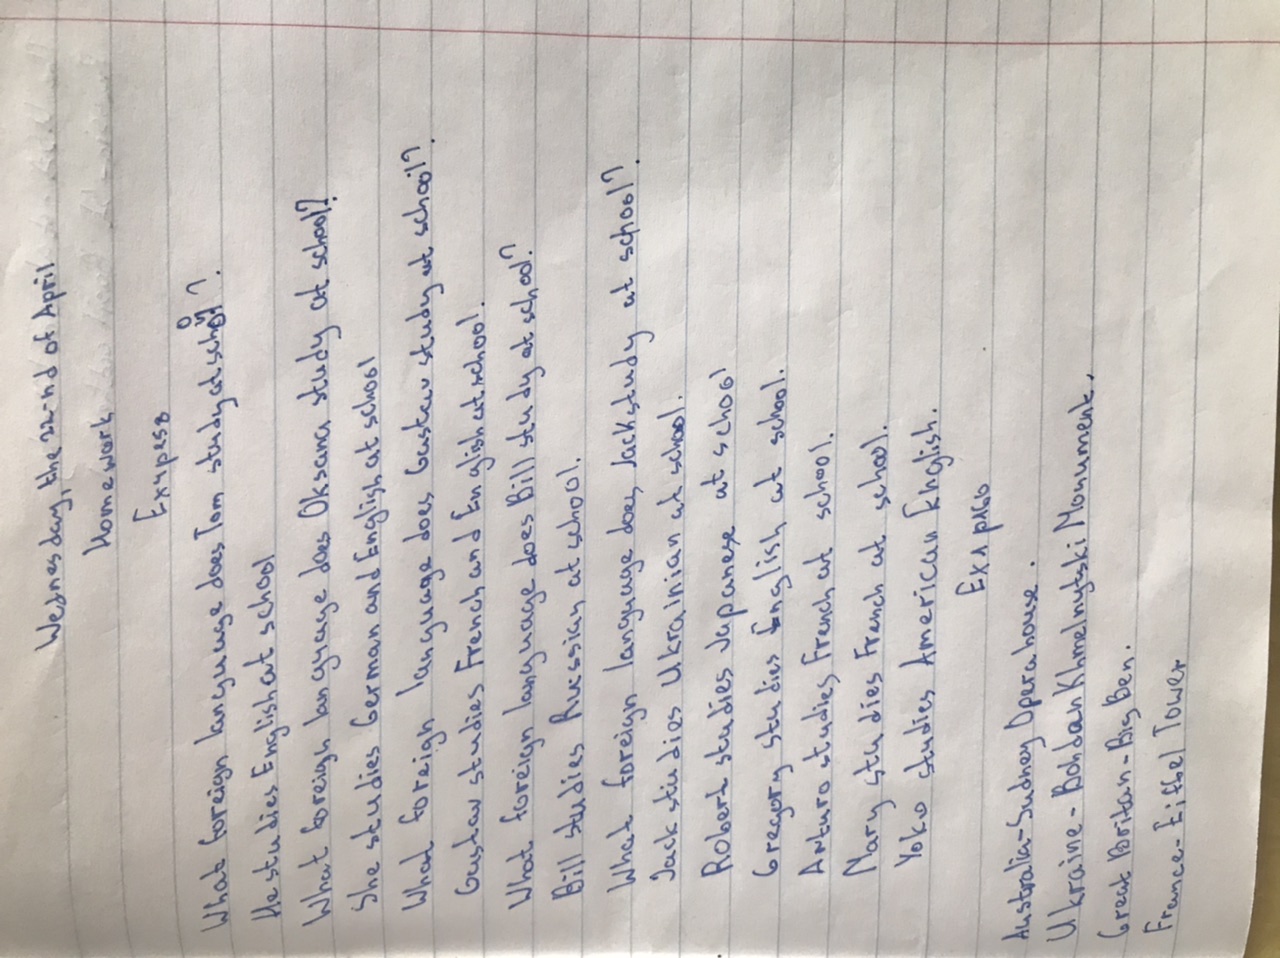 Wednesday, the 22-nd of April
Homework
Ex4 p158
What foreign language does Tom study at school?.
He studies English at school
What foreign language does Oksana study at school?.
She studies German and English at school
What foreign language does Gustav study at school?.
Gustav studies French and English at school.
What foreign language does Bill study at school?.
Bill studies Russian at school.
What foreign language does Jack study at school?.
Jack studies Ukrainian at school.
Robert studies Japanese at school
Gregory studies English at school.
Arturo studies French at school.
Mary studies French at school.
Yoko studies American English.
Ex1 p160
Australia-Sudney Opera house.
Ukraine-Bohdan Khmelnytski Monument.
Great Britan-Big Ben.
France-Eiffel Tower